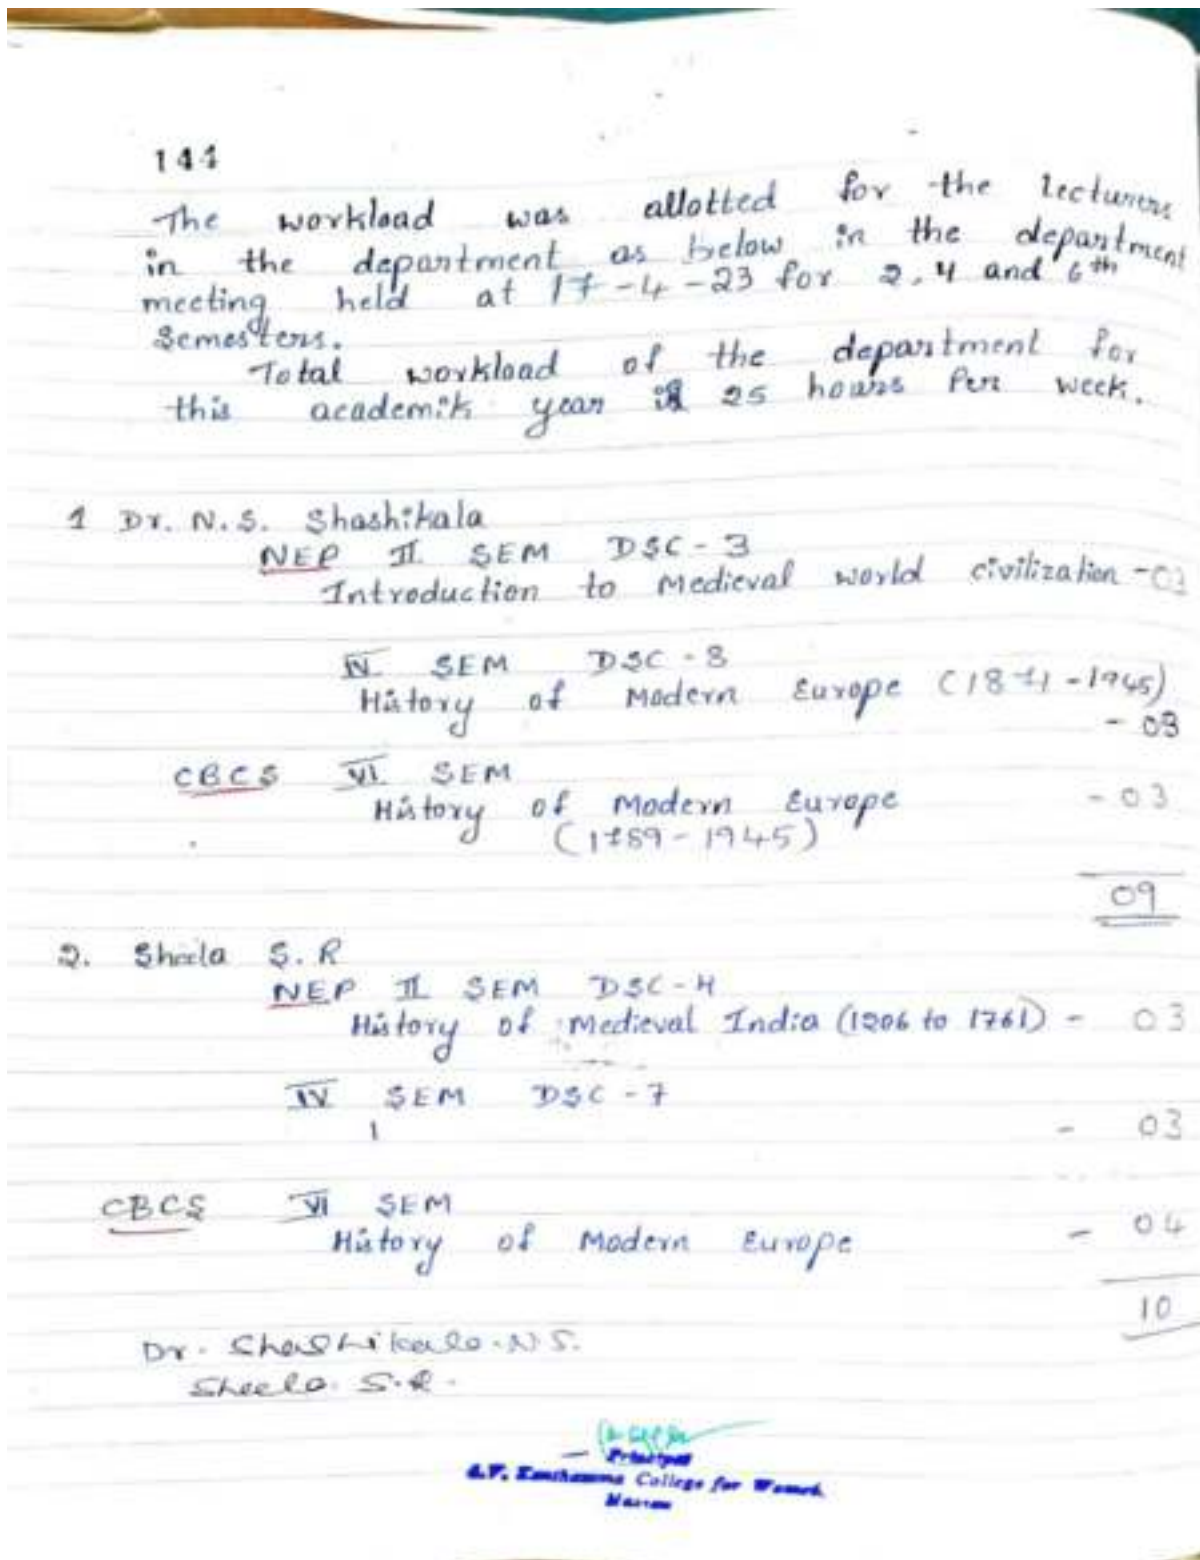 144
The workload was allotted for the lecturers
in the department as below in the department
meeting held at 17-4-23 for 2, 4 and 6th
Semesters.
Total workload of the department for
this academik year is 25 hours Per week.
1 Dr. N.S. Shashikala
NEP II SEM DSC - 3
Introduction to Medieval world civilization - 03
IV SEM DSC - 8
History of Modern Europe (1871-1945)
- 03
CBCS VI SEM
History of Modern Europe - 03
(1789-1945)
09
2. Sheela S.R
NEP II SEM DSC-4
History of Medieval India (1206 to 1761) - 03
IV SEM DSC - 7
- 03
CBCS VI SEM
History of Modern Europe - 04
10
Dr. Shashikala. N S.
Sheela. S.R.
Principal
A.V. Kanthamma College for Women,
Hassan